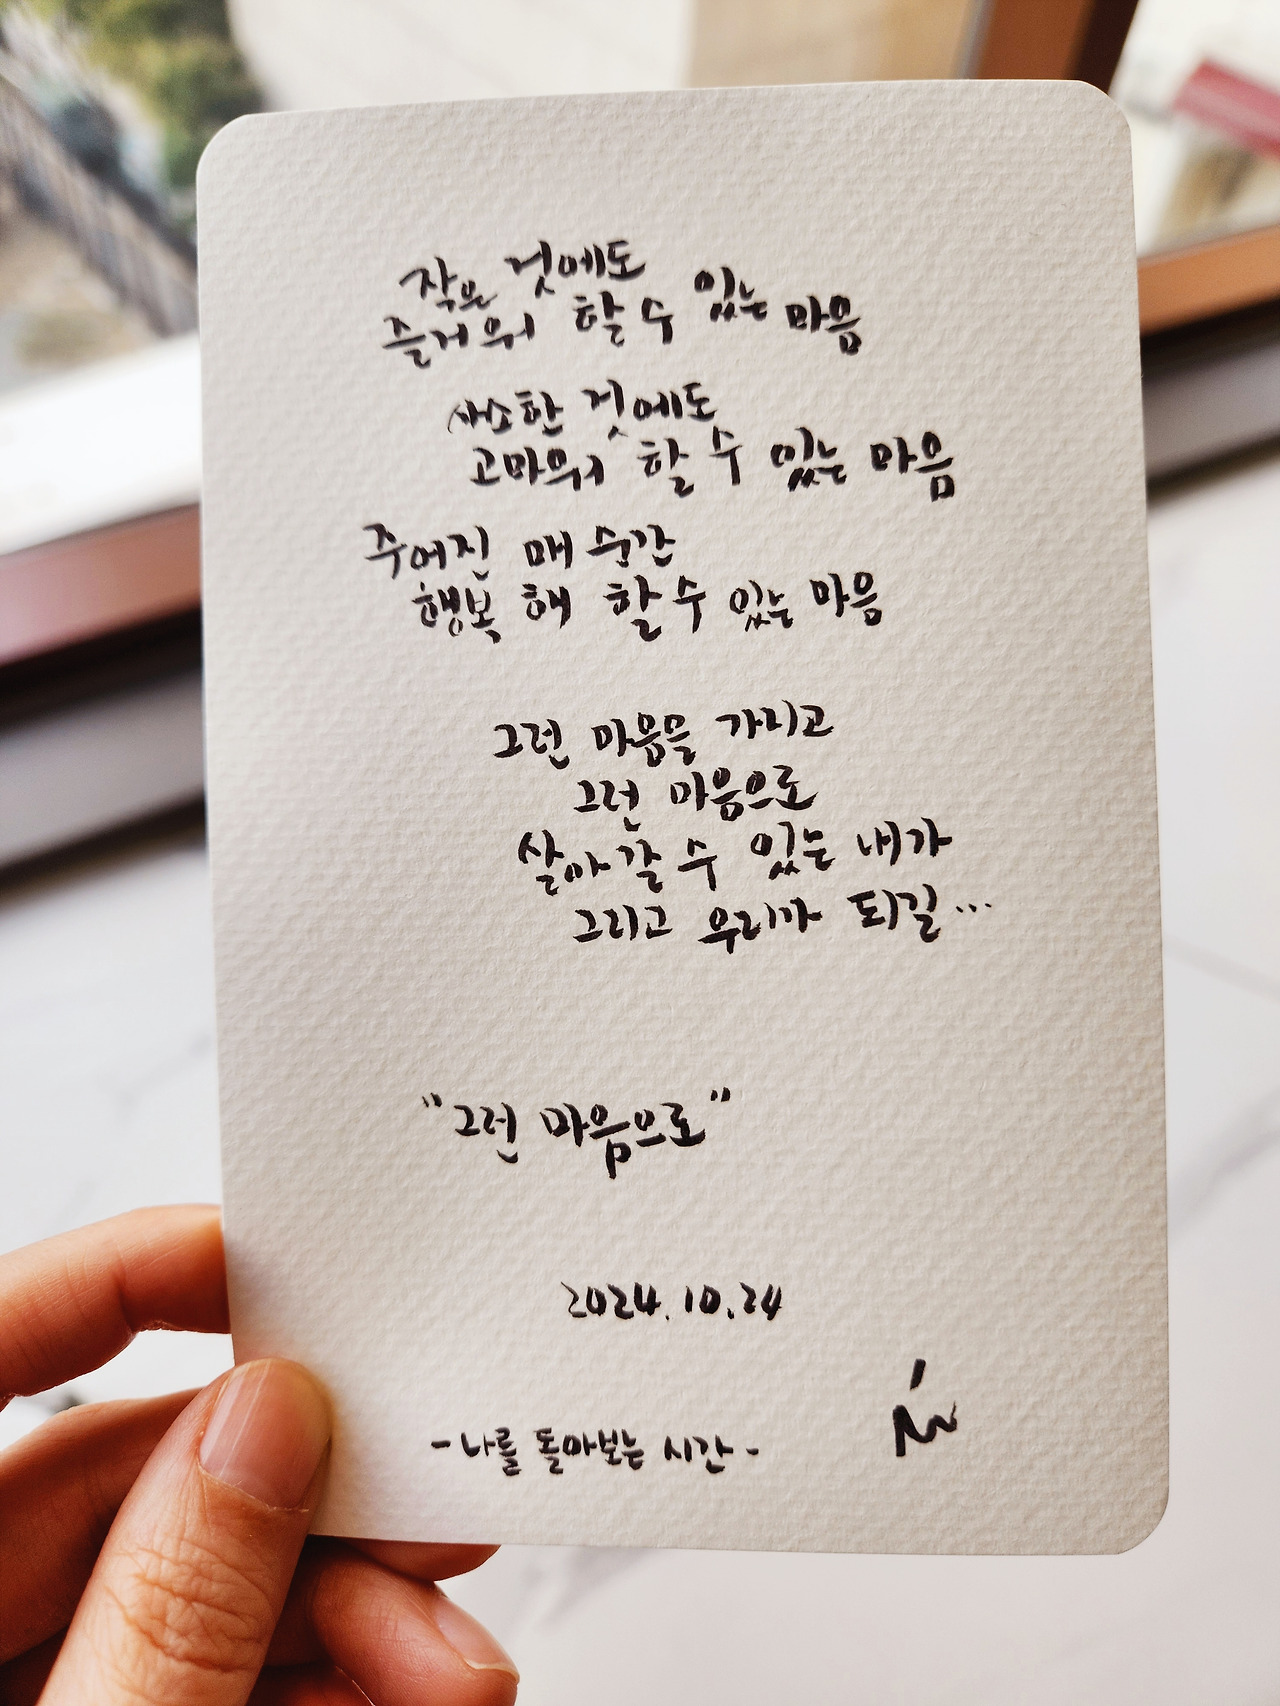 작은 것에도
즐거워 할 수 있는 마음
사소한 것에도
고마워 할 수 있는 마음
주어진 매 순간
행복 해 할 수 있는 마음
그런 마음을 가지고
그런 마음으로
살아갈 수 있는 내가
그리고 우리가 되길...
"그런 마음으로"
2024.10.24
-나를 돌아보는 시간-